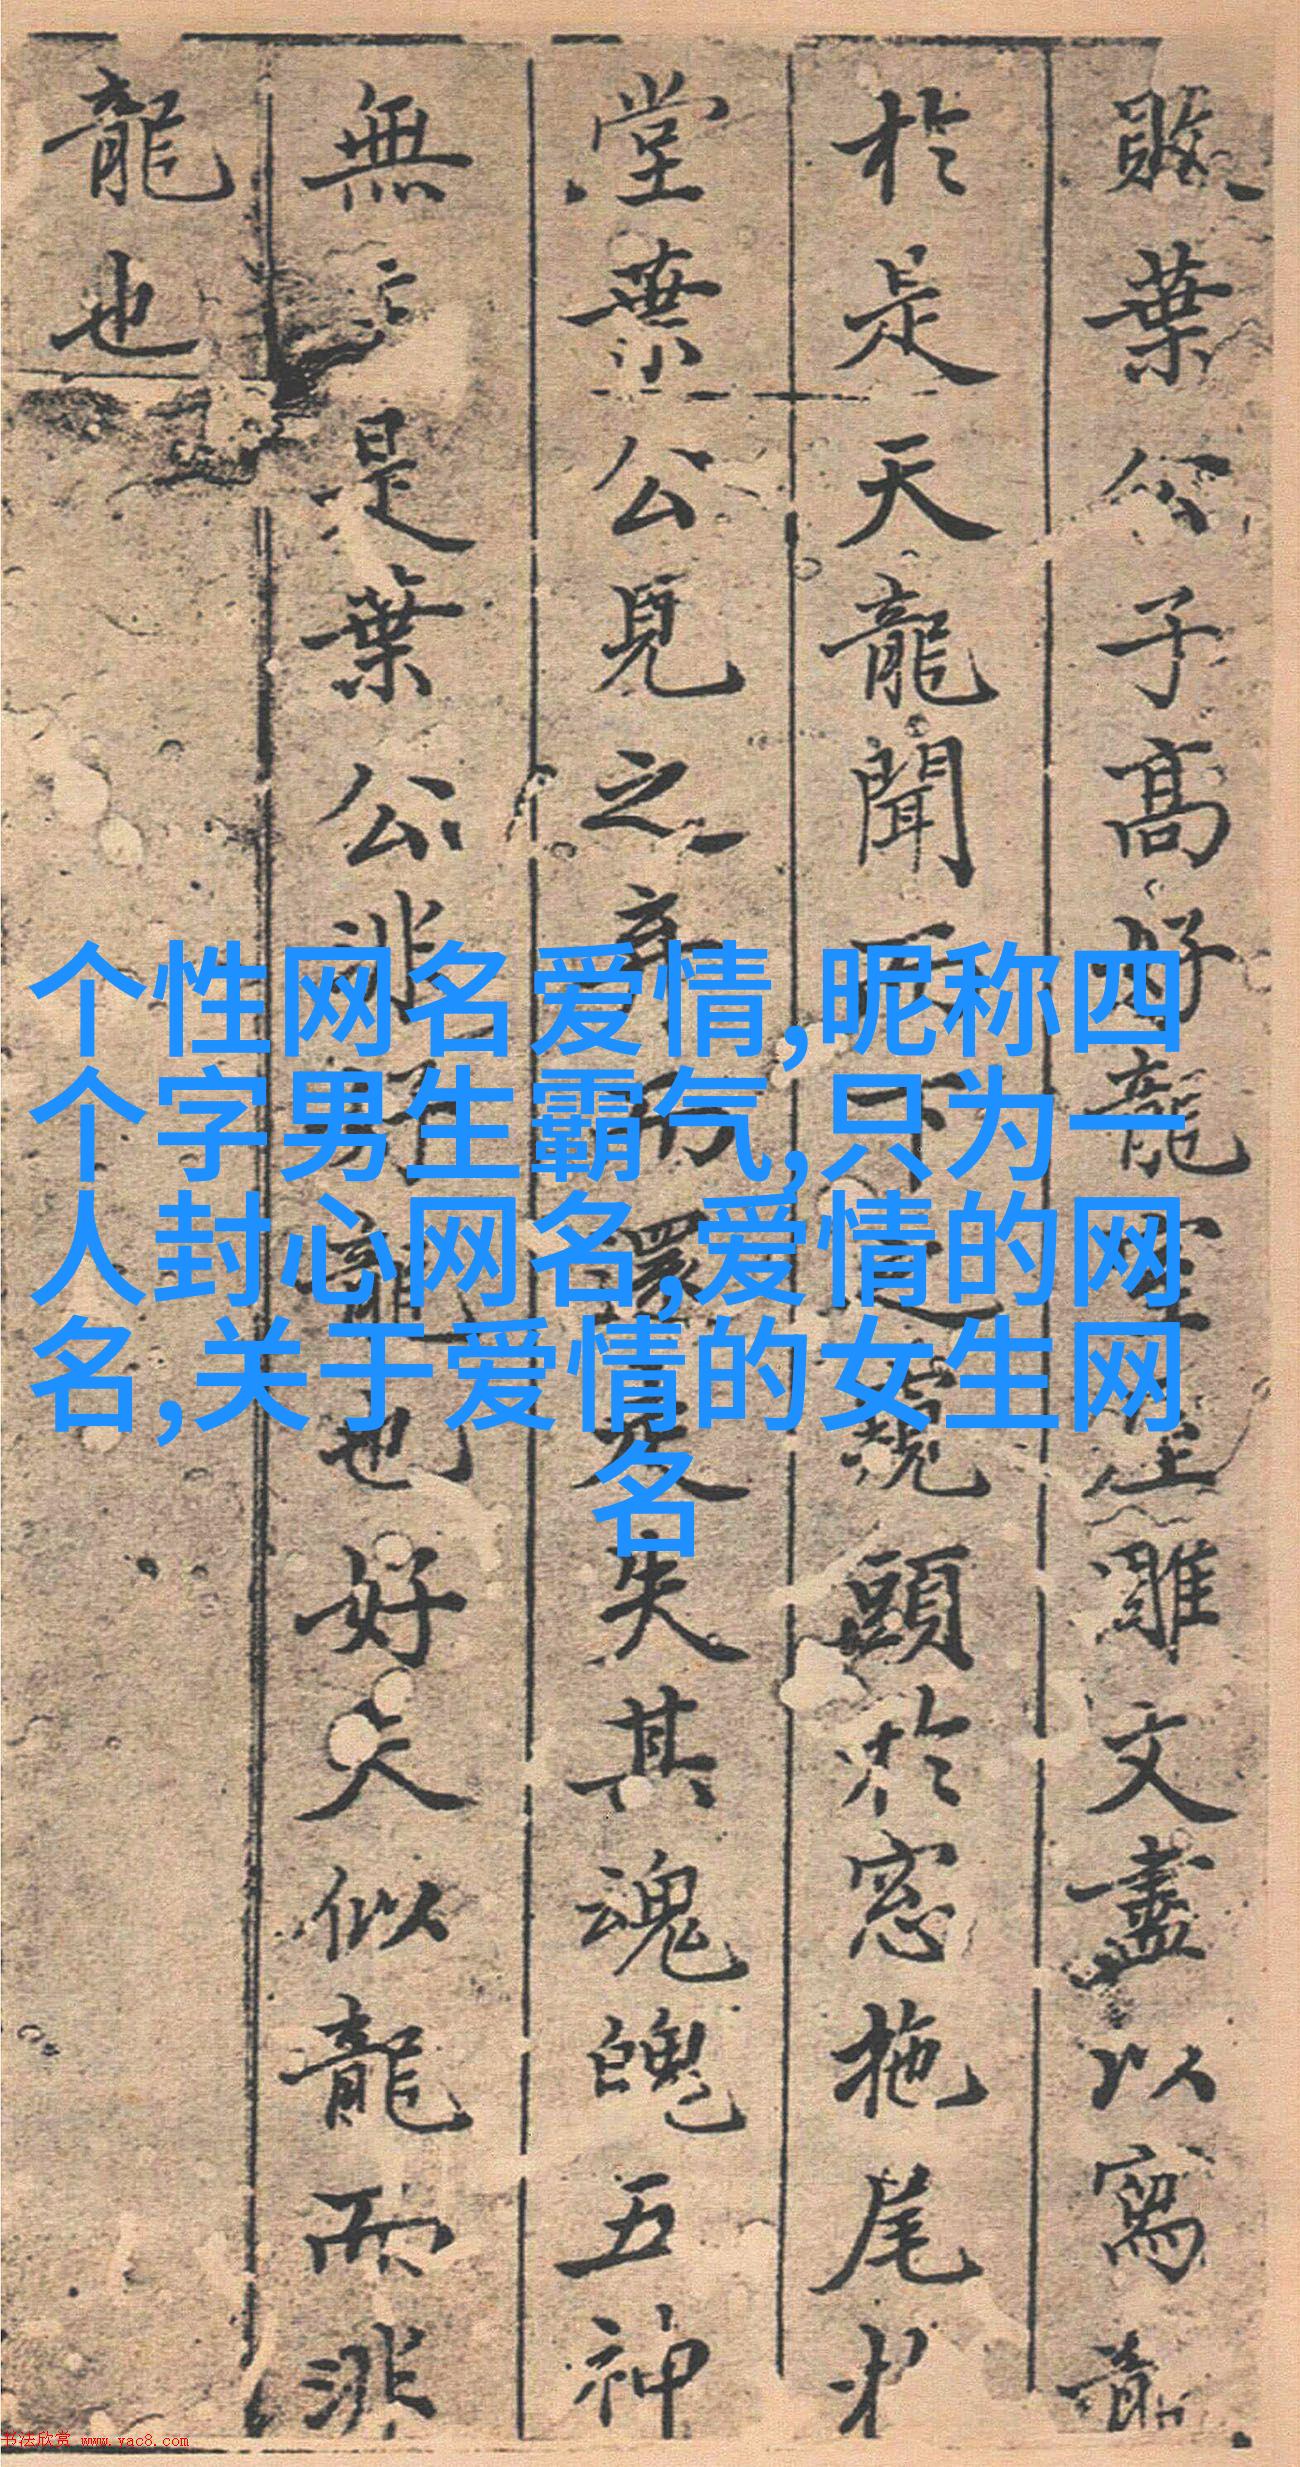 敗葉公子高好龍室屋雕文盡以寫龍
於是天龍聞而下之窺頭於窓拖尾於
堂葉公見之弃而還走失其魂魄五神
無主是葉公非好龍也好夫似龍而非
龍也
个性网名爱情,昵称四
个字男生霸气,只为一
人封心网名,爱情的网
名,关于爱情的女生网
名
书法欣赏 www.yac8.com